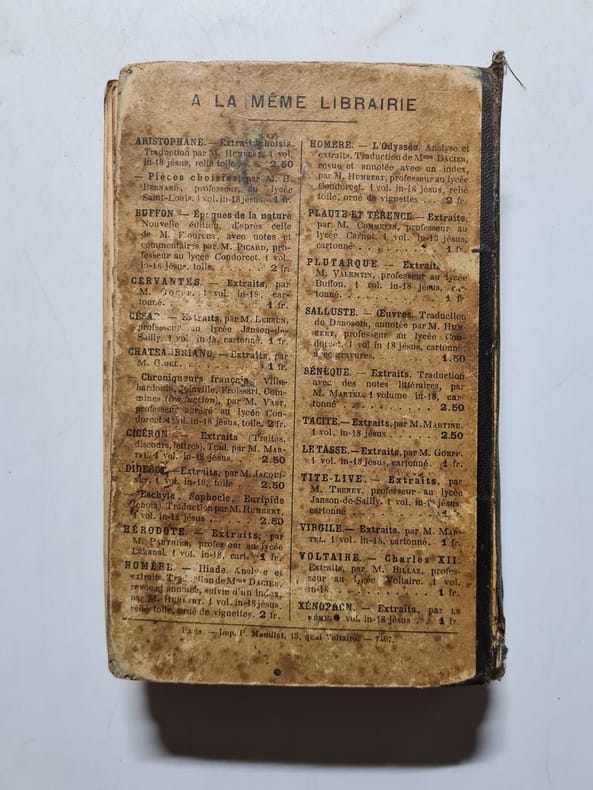 A LA MÊME LIBRAIRIE
ARISTOPHANE. — Extraits choisis.
Traduction par M. HUMBERT. 1 vol.
in-18 jésus, relié toile . . 2.50
— Pièces choisies, par M. H.
BERNARD, professeur au lycée
Saint-Louis. 1 vol. in-18 jésus. 1 fr.
BUFFON. — Époques de la nature
Nouvelle édition, d'après celle
de M. FLOURENS, avec notes et
commentaires par M. PICARD, pro-
fesseur au lycée Condorcet. 1 vol.
in-18 jésus, toile. . . . . 2 fr.
CERVANTES. — Extraits, par
M. 1 vol. in-18, car-
tonné. . . . . 1 fr.
CÉSAR — Extraits, par M. LEBRUN,
professeur au lycée Janson-de-
Sailly. 1 vol. in-18, cartonné. 1 fr.
CHATEAUBRIAND. — Extraits, par
M. . . . . 1 fr.
Chroniqueurs français. Ville-
hardouin, Joinville, Froissart, Com-
mines (traduction), par M. VAST,
professeur agrégé au lycée Con-
dorcet. 1 vol. in-18 jésus, toile. 2 fr.
CICÉRON. — Extraits (Traités,
discours, lettres). Trad. par M. MAR-
TEL. 1 vol. in-18 jésus. . . 2.50
DIDEROT. — Extraits, par M. JACQUI-
1 vol. in-18, toile . . 2.50
Eschyle, Sophocle, Euripide
(choix). Traduction par M. HUMBERT.
1 vol. in-18 jésus . . . . 2.50
HÉRODOTE. — Extraits, par
M. PARTHIER, professeur au lycée
Lakanal. 1 vol. in-18, cart. 1 fr.
HOMÈRE. — Iliade. Analyse et
extraits. Traduction de Mme DACIER,
revue et annotée, suivie d'un index,
par M. HUMBERT. 1 vol. in-18 jésus,
relié toile, orné de vignettes. 2 fr.
HOMÈRE. — L'Odyssée. Analyse et
extraits. Traduction de Mme DACIER,
revue et annotée avec un index,
par M. HUMBERT, professeur au lycée
Condorcet. 1 vol. in-18 jésus, relié
toile, orné de vignettes . . . 2 fr.
PLAUTE ET TÉRENCE. — Extraits,
par M. COMMELIN, professeur au
lycée Carnot. 1 vol. in-18 jésus,
cartonné . . . . 1 fr.
PLUTARQUE. — Extraits
M. VALENTIN, professeur au lycée
Buffon. 1 vol. in-18 jésus, car-
tonné. . . . . 1 fr.
SALLUSTE. — Œuvres. Traduction
de DUROSOIR, annotée par M. HUM-
BERT, professeur au lycée Con-
dorcet. 1 vol in 18 jésus, cartonné,
avec gravures. . . . . 1.50
SÉNÈQUE. — Extraits. Traduction
avec des notes littéraires, par
M. MARTEL. 1 volume in-18, car-
tonné . . . . 2.50
TACITE. — Extraits, par M. MARTINE.
1 vol. in-18 jésus. . . . 2.50
LE TASSE. — Extraits, par M. GOEPP.
1 vol. in-18 jésus, cartonné. 1 fr.
TITE-LIVE. — Extraits, par
M. TRENEY, professeur au lycée
Janson-de-Sailly. 1 vol. in-18 jésus,
cartonné . . . . 1 fr.
VIRGILE. — Extraits, par M. MAR-
TEL. 1 vol. in-18, cartonné. 1 fr.
VOLTAIRE. — Charles XII.
Extraits, par M. BILLAZ, profes-
seur au lycée Voltaire. 1 vol.
in-18 . . . . . 1 fr.
XÉNOPHON. — Extraits, par LE
vol. in-18 jésus . . 1 fr.
Paris. — Imp. P. Mouillot, 13, quai Voltaire. — 7467.